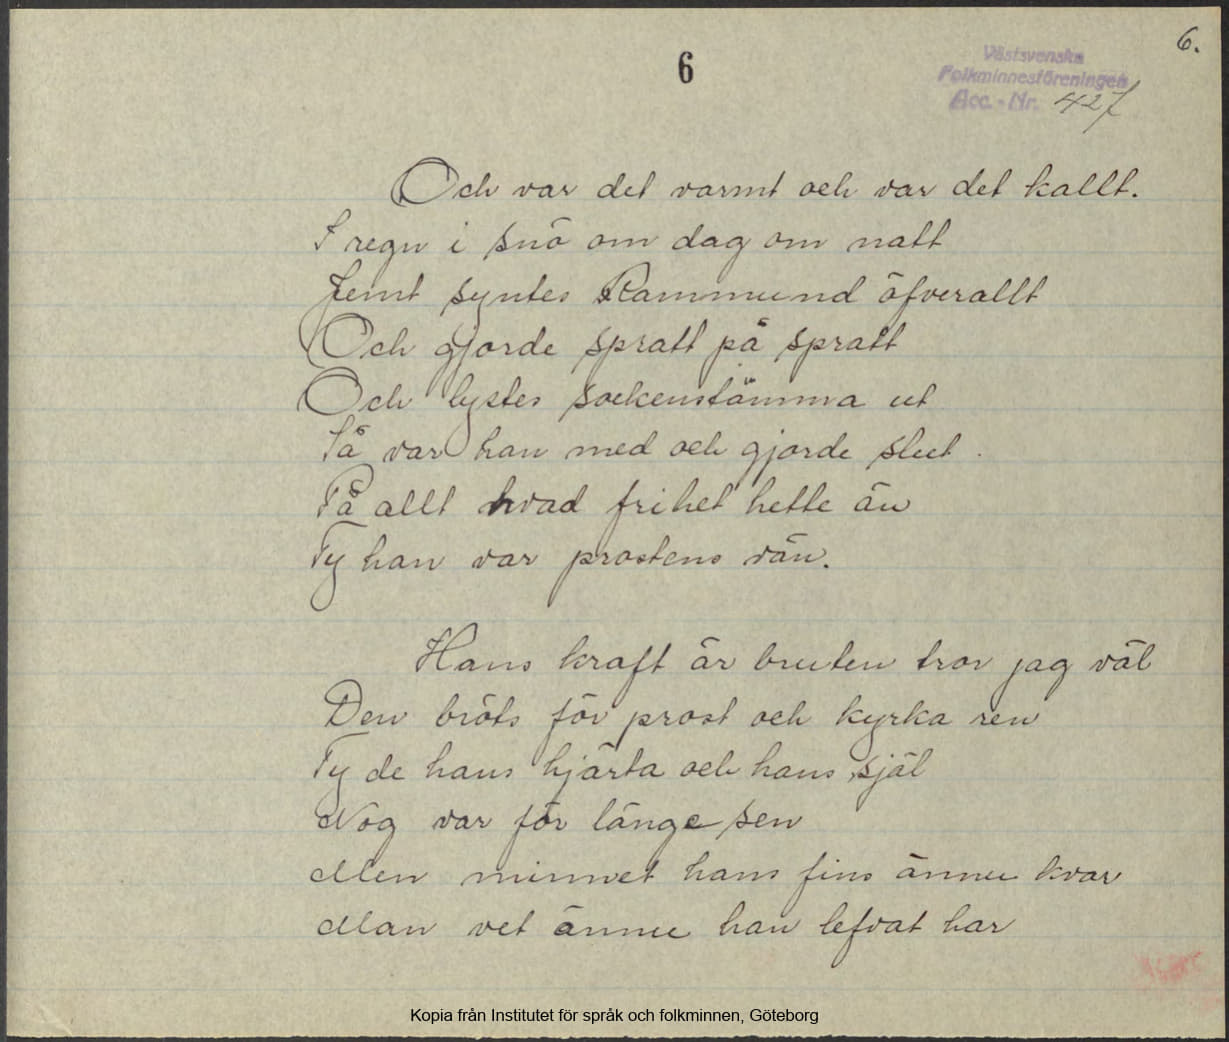 6.
6
Västsvenska
Folkminnesföreningen
Acc. - Nr. 427
Och var det varmt och var det kallt.
I regn i snö om dag om natt
Jemt syntes Rammund öfverallt
Och gjorde spratt på spratt
Och lystes sockenstämma ut
Så var han med och gjorde slut.
På allt hvad frihet hette än
Ty han var prostens vän.
Hans kraft är bruten tror jag väl
Den bröts för prost och kyrka ren
Ty de hans hjärta och hans själ
Nog var för länge sen
Men minnet hans fins ännu kvar
Man vet ännu han lefvat har
Kopia från Institutet för språk och folkminnen, Göteborg